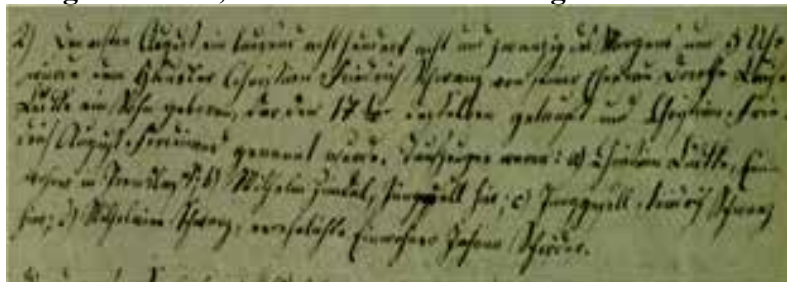 2) Den ersten August ein tausend acht hundert acht und zwanzig des Morgens um 5 Uhr
wurde dem Häusler Christian Friedrich Schwarz von seiner Ehefrau Dorothe Louise
Lütke ein Sohn geboren, der den 17 ten desselben getauft und Christian Frie-
drich August Ferdinand genannt wurde. Taufzeugen waren: a) Christian Lütke, Ein-
wohner in b) Wilhelm Junggesell hier; c) Junggesell Friedrich Schwarz
hier; d) Wilhelmine Schwarz, verehelichte Einwohner Johann Schröder.